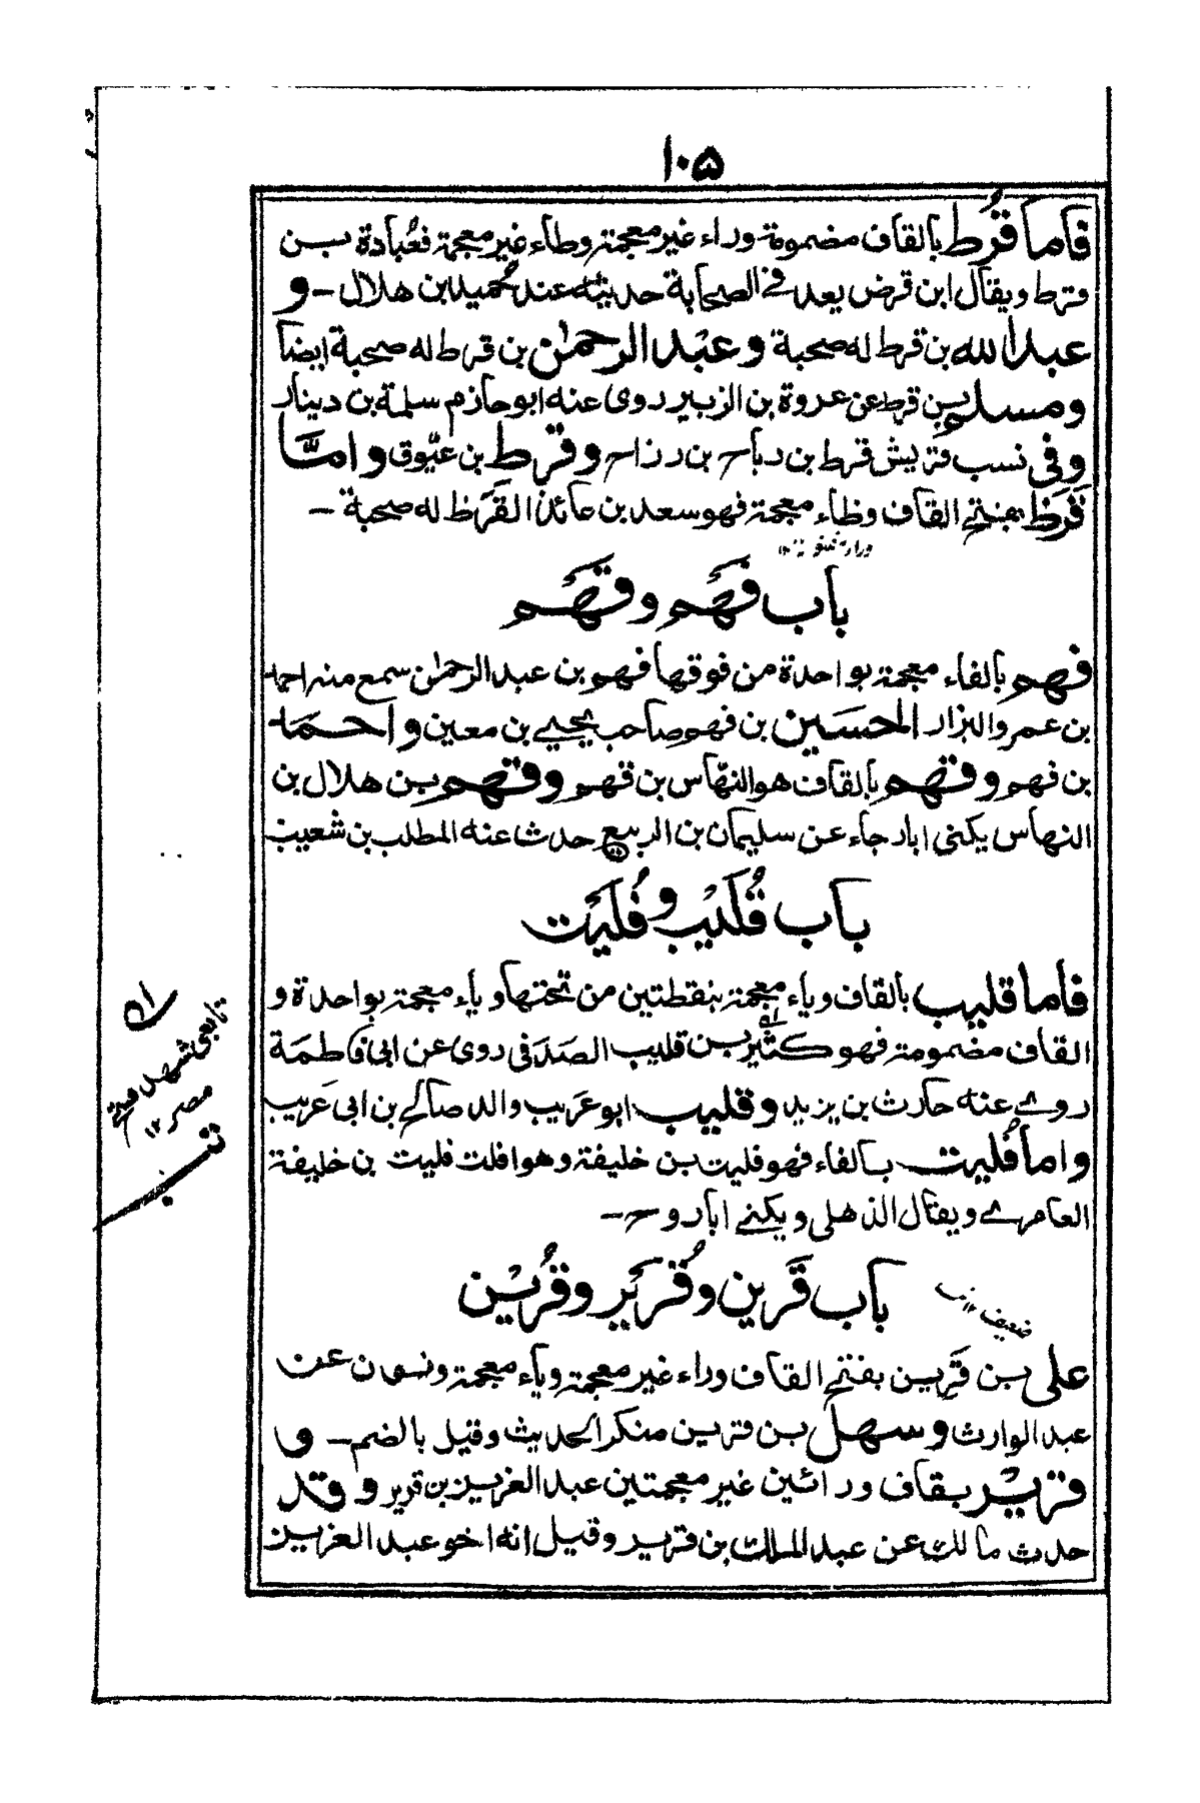 ١٠٥
فاما قُرط بالقاف مضمومة وراء غير معجمة وطاء غير معجمة فعُبادة بن
قرط ويقال ابن قرض يعد فى الصحابة حديثه عند حُميد بن هلال – و
عبد الله بن قرط له صحبة وعبْد الرحمٰن بن قرط له صحبة ايضا
ومسلم بن قرط عن عروة بن الزبير روى عنه ابو حازم سلمة بن دينار
وفى نسب قريش قرط بن رباح بن رزاح وقرط بن عيّوق وامّا
قَرَظ بفتح القاف وظاء معجمة فهو سعد بن عائذ القَرَظ له صحبة –
باب فَهَم وقَهَم
فهم بالفاء معجمة بواحدة من فوقها فهم بن عبد الرحمٰن سمع منه احمد
بن عمرو البزار الحسَين بن فهم صاحب يحيى بن معين واحمَد
بن فهم وقهم بالقاف هو النهّاس بن قهم وقهم بن هلال بن
النهاس يكنى ابا رجاء عن سليمان بن الربيع حدث عنه المطلب بن شعيب
باب قُلَيْب وفُلَيْت
فاما قليب بالقاف وياء معجمة بنقطتين من تحتها وباء معجمة بواحدة و
القاف مضمومة فهو كثير بن قليب الصدَفى روى عن ابى فاطمَة
روى عنه حارث بن يزيد وقليب ابو عَريب والد صالح بن ابى عَريب
واما فُليت بالفاء فهو فليت بن خليفة وهو افلت فليت بن خليفة
العامرى ويقال الذهلى ويكنى ابا روح –
باب قَرين وقُرَيْر وقُرَيْن
ضعيف ١٢
على بن قَرين بفتح القاف وراء غير معجمة وياء معجمة ونون عن
عبد الوارث وسهل بن قرين منكر الحديث وقيل بالضم – و
قريْر بقاف ورائين غير معجمتين عبد العزيز بن قرير وقد
حدث مالك عن عبد الملك بن قرير وقيل انه اخو عبد العزيز
تابعى شهد فتح
مصر ١٢